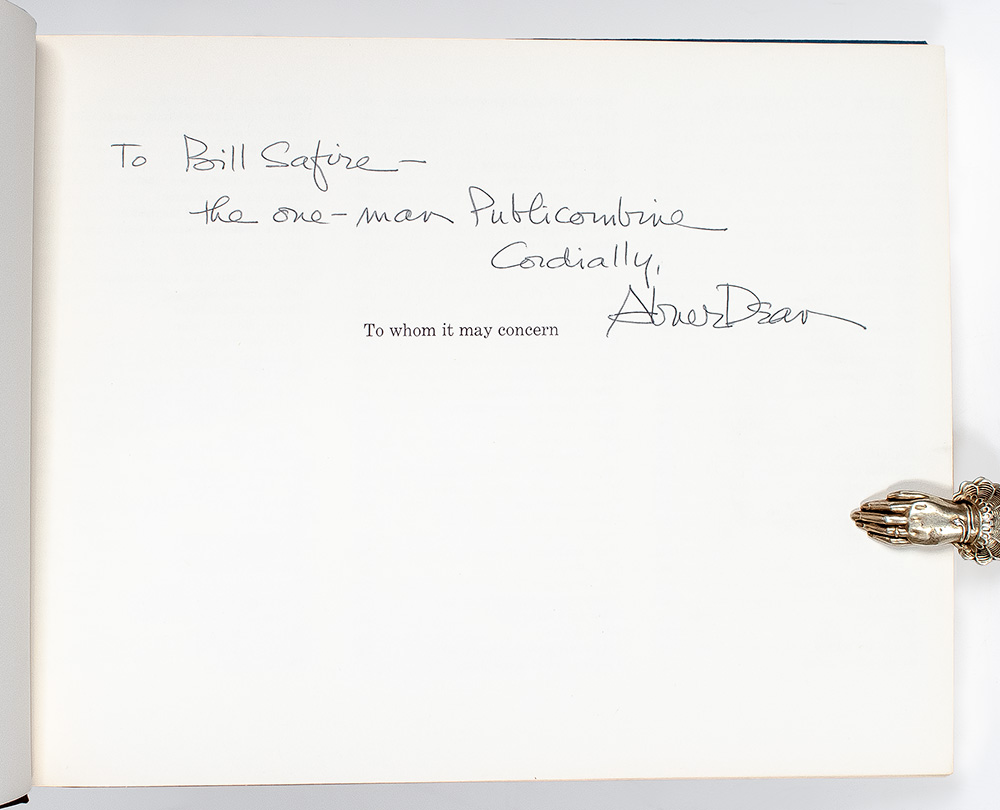 To Bill Safire –
the one-man Publicombine
Cordially,
Abner Dean
To whom it may concern